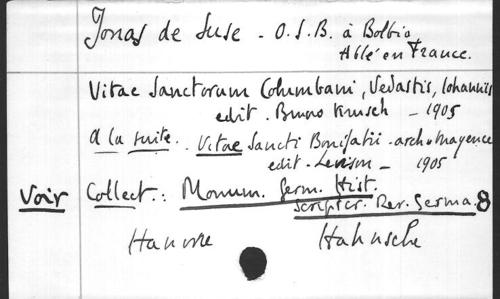 Jonas de Suse - O.S.B. à Bobbio,
Abbé en France.
Vitae Sanctorum Columbani, Vedastis, Iohannis
edit. Bruno Krusch - 1905
à la suite. Vitae Sancti Bonifatii arch. Mayence
edit - Levison - 1905
Voir Collect.: Monum. Germ. Hist.
Scriptor. Rer. Germa. 8
Hanovre Hahnsche